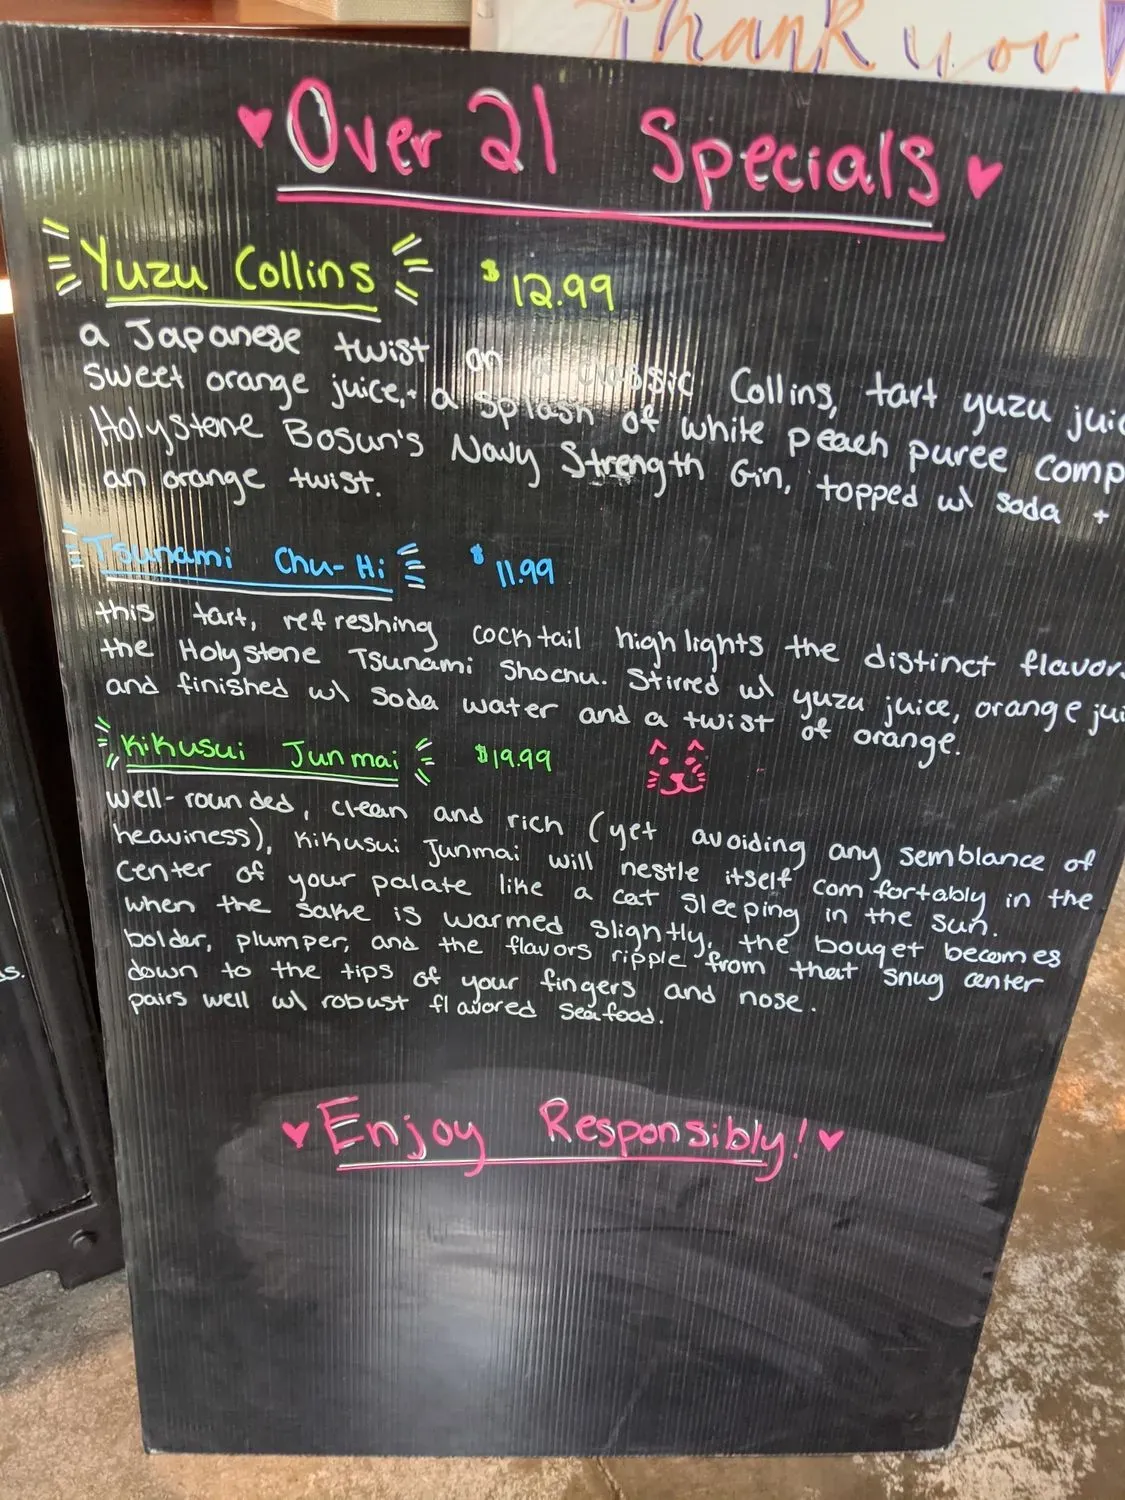 Thank you
Over 21 Specials
Yuzu Collins $12.99
a Japanese twist on a classic Collins, tart yuzu juic
sweet orange juice, + a splash of white peach puree comp
Holystone Bosun's Navy Strength Gin, topped w\ soda +
an orange twist.
Tsunami Chu-Hi $11.99
this tart, refreshing cocktail highlights the distinct flavors
the Holystone Tsunami Shochu. Stirred w\ yuzu juice, orange jui
and finished w\ soda water and a twist of orange.
Kikusui Junmai $19.99
well-rounded, clean and rich (yet avoiding any semblance of
heaviness), Kikusui Junmai will nestle itself comfortably in the
center of your palate like a cat sleeping in the sun.
when the sake is warmed slightly, the bouqet becomes
bolder, plumper, and the flavors ripple from that snug center
down to the tips of your fingers and nose.
pairs well w\ robust flavored seafood.
s.
Enjoy Responsibly!